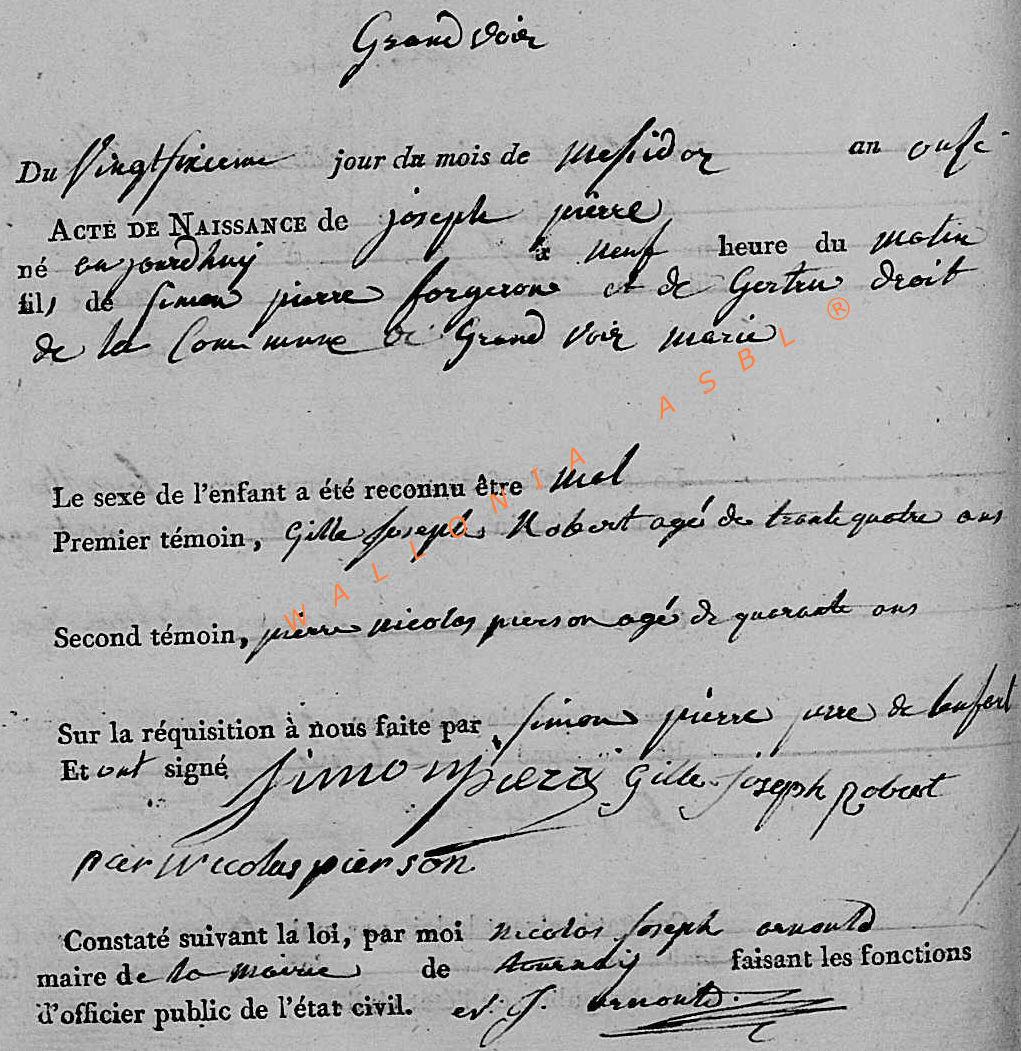 Grand voir
Du Vingtsixieme jour du mois de messidor an onse
ACTE DE NAISSANCE de joseph pierre
né aujourdhuy à neuf heure du matin
fils de simon pierre forgeron et de Gertru droit
de la Commune de Grand voir marié
Le sexe de l'enfant a été reconnu être mal
Premier témoin, Gille joseph Robert agé de trante quatre ans
Second témoin, pierre nicolas pierson agé de quarante ans
Sur la réquisition à nous faite par simon pierre perre de lanfent
Et ont signé simon pierre Gille joseph Robert
nicolas pierson
Constaté suivant la loi, par moi nicolas joseph arnould
maire de la mairie de tournay faisant les fonctions
d'officier public de l'état civil. N. J. arnould.
WALLONIA ASBL ®